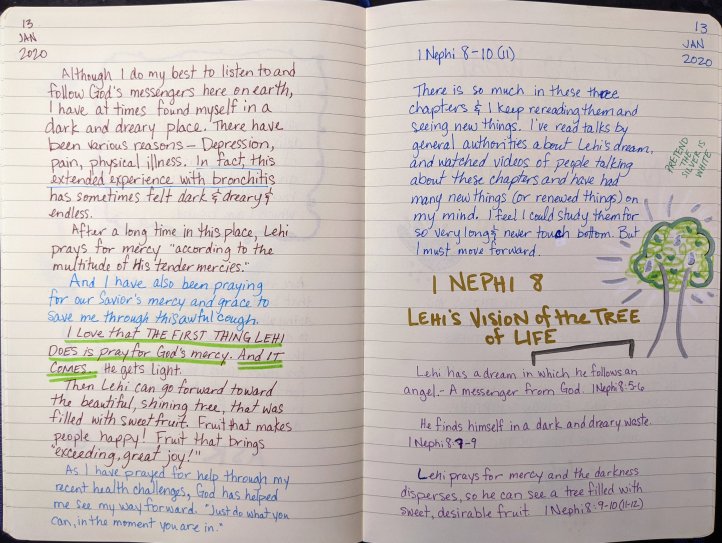 13
JAN
2020
Although I do my best to listen to and
follow God's messengers here on earth,
I have at times found myself in a
dark and dreary place. There have
been various reasons – Depression,
pain, physical illness. In fact, this
extended experience with bronchitis
has sometimes felt dark & dreary &
endless.
After a long time in this place, Lehi
prays for mercy "according to the
multitude of His tender mercies."
And I have also been praying
for our Savior's mercy and grace to
save me through this awful cough.
I Love that THE FIRST THING LEHI
DOES is pray for God's mercy. And IT
COMES... He gets light.
Then Lehi can go forward toward
the beautiful, shining tree, that was
filled with sweet fruit. Fruit that makes
people happy! Fruit that brings
"exceeding, great joy!"
As I have prayed for help through my
recent health challenges, God has helped
me see my way forward. "Just do what you
can, in the moment you are in."
13
JAN
2020
1 Nephi 8-10 (11)
There is so much in these three
chapters & I keep rereading them and
seeing new things. I've read talks by
general authorities about Lehi's dream,
and watched videos of people talking
about these chapters and have had
many new things (or renewed things) on
my mind. I feel I could study them for
so very long & never touch bottom. But
I must move forward.
PRETEND
THE
SILVER IS
WHITE
1 NEPHI 8
LEHI'S VISION OF the TREE
of LIFE
Lehi has a dream in which he follows an
angel. - A messenger from God. 1 Nephi 8:5-6
He finds himself in a dark and dreary waste.
1 Nephi 8:7-9
Lehi prays for mercy and the darkness
disperses, so he can see a tree filled with
sweet, desirable fruit. 1 Nephi 8:9-10 (11-12)